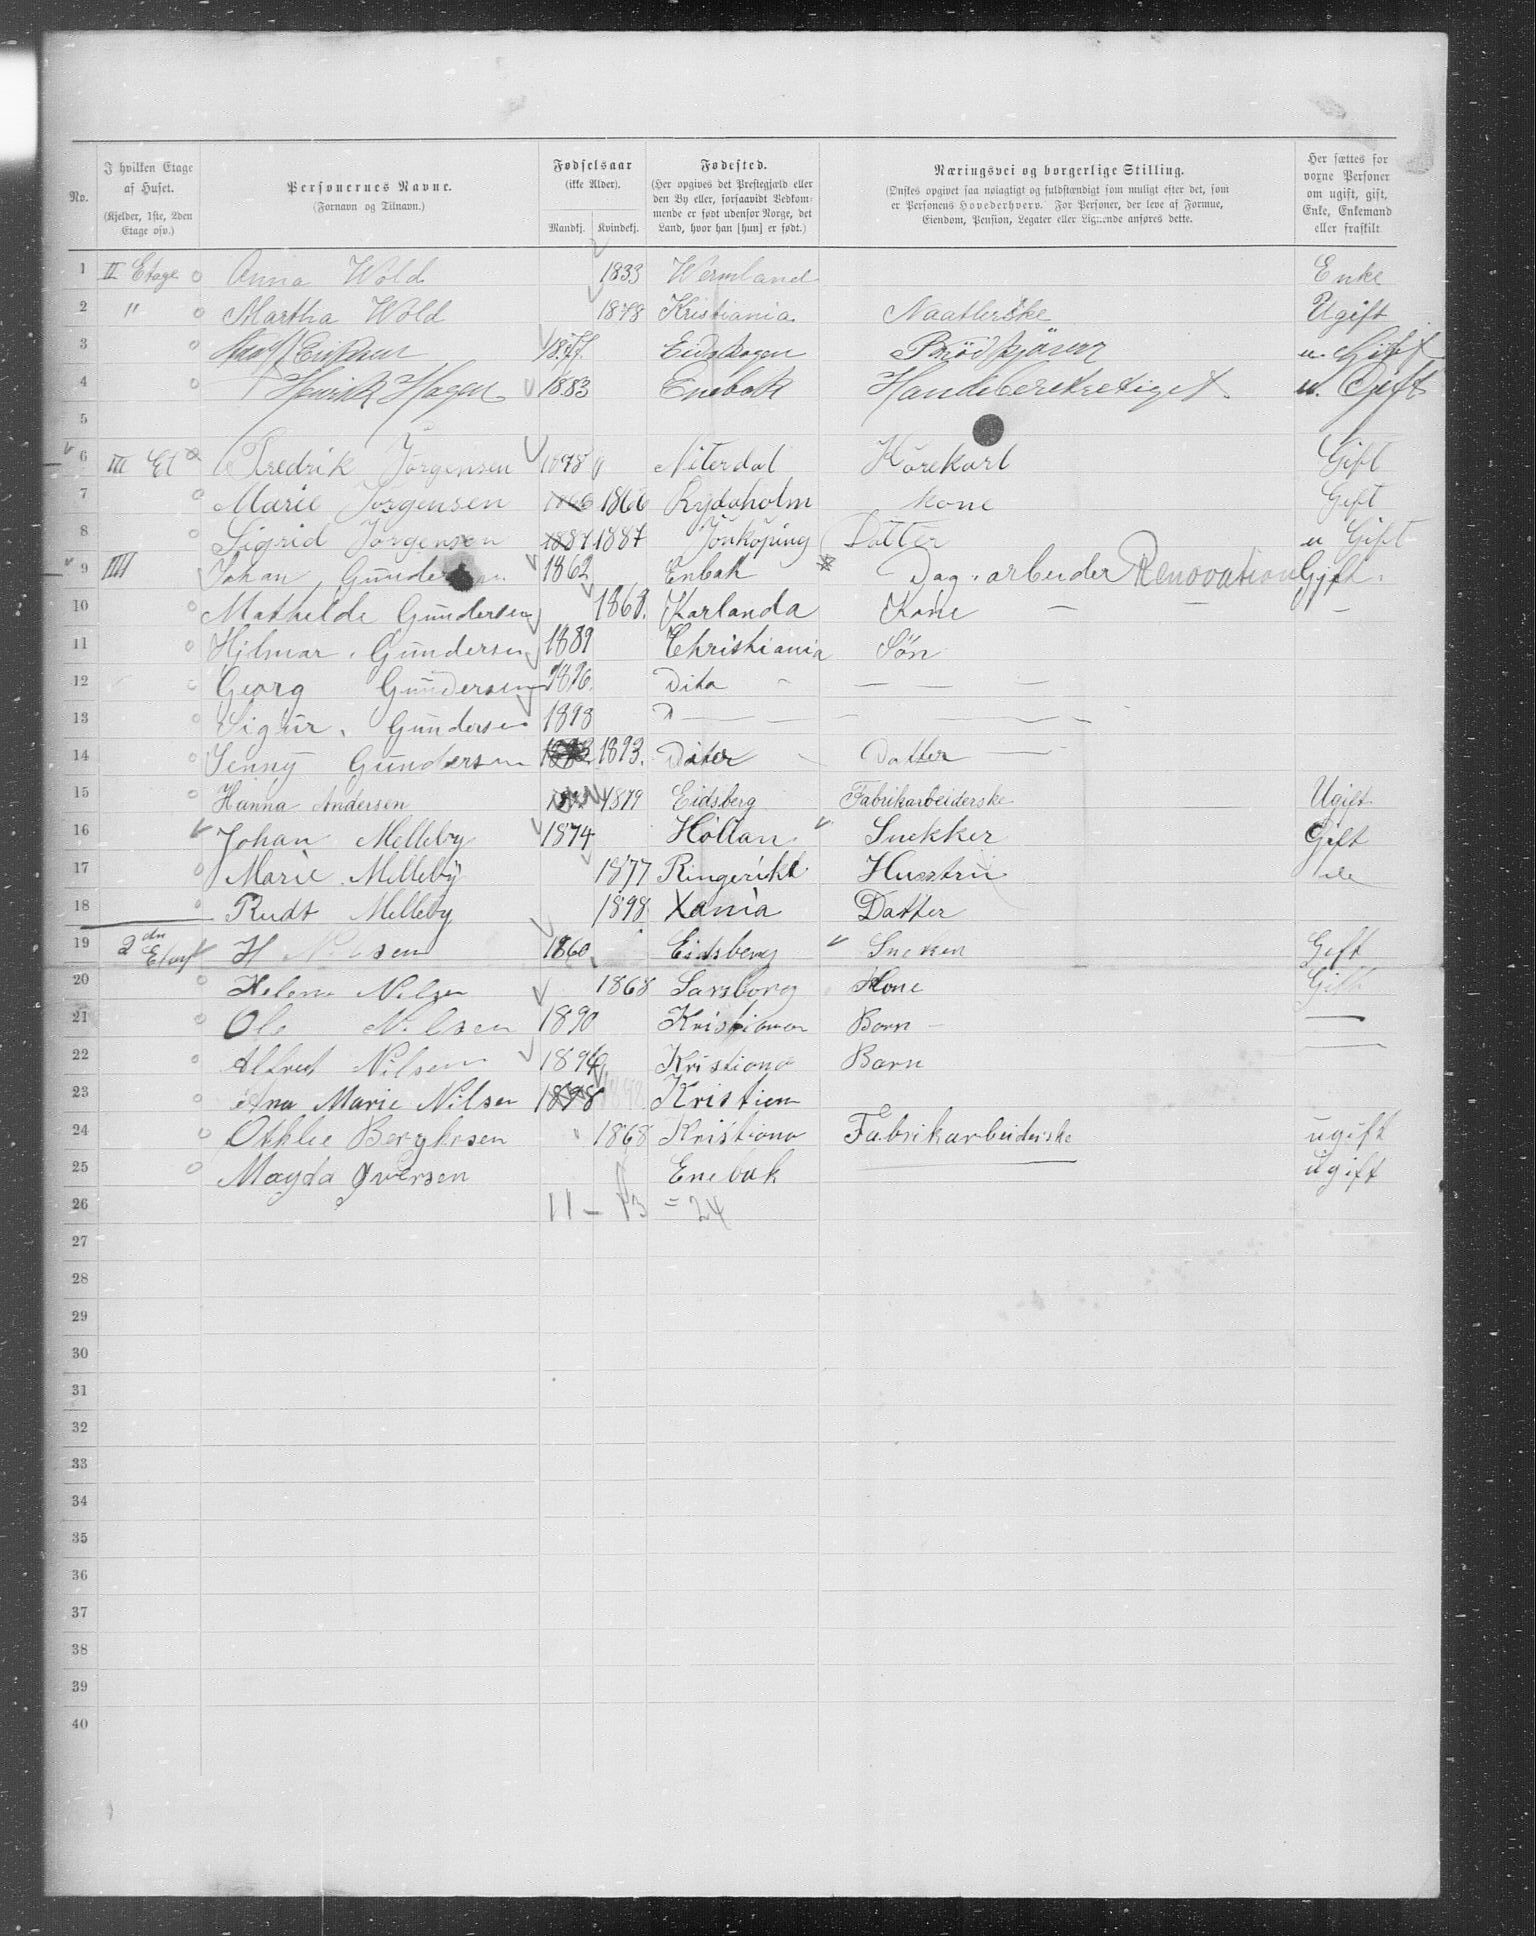 No.
I hvilken Etage af Huset. (Kjelder, 1ste, 2den Etage osv.)
Personernes Navne. (Fornavn og Tilnavn.)
Fødselsaar (ikke Alder).
Mandkj. Kvindekj.
Fødested. (Her opgives det Prestegjæld eller den By eller, forsaavidt Vedkommende er født udenfor Norge, det Land, hvor han [hun] er født.)
Næringsvei og borgerlige Stilling. (Ønskes opgivet saa nøiagtigt og fuldstændigt som muligt efter det, som er Personens Hovederhverv. For Personer, der leve af Formue, Eiendom, Pension, Legater eller Lignende anføres dette.
Her sættes for voxne Personer om ugift, gift, Enke, Enkemand eller fraskilt
1 II Etage Anna Wold 1833 Wermland Enke
2 " Martha Wold 1878 Kristiania Naatlerske Ugift
3 1877 Eidskogen u. Gift
4 Henrik Hagen 1883 Enebak u. Gift
5
6 III Et Fredrik Jörgensen 1878 Niterdal Körekarl Gift
7 Marie Jorgensen 1866 1866 Rydaholm Kone Gift
8 Sigrid Jorgensen 1887 1887 Jönköping Datter u Gift
9 IIII Johan Gundersen 1862 Enbak Dag. arbeider Renovation Gift.
10 Mathilde Gundersen 1868. Karlanda Kone — — —
11 Hjlmar. Gundersen 1889 Christiania Søn
12 Georg Gundersen 1896. Dito — — —
13 Sigur. Gundersen 1898 D — — — —
14 Jenny Gundersen 1893. Diter Datter —
15 Hanna Andersen 1879 Eidsberg Fabrikarbeiderske Ugift
16 Johan Melleby 1874 Höllan Snekker Gift
17 Marie Melleby 1877 Ringerike Husstru
18 Rudt Melleby 1898 Xania Datter
19 2den Etag H Nilsen 1860 Eidsberg Gift
20 Helene Nilsen 1868 Sarsborg Kone Gift
21 Ole Nilsen 1890 Kristianan Barn —
22 Alfred Nilsen 1894 Kristiana Barn —
23 Ana Marie Nilsen 1898 1898 Kristian
24 Othlie Bergersen " 1868 Kristiana Fabrikarbeiderske ugift
25 Magda Iversen Enebak — ugift
26 11 — 13 = 24
27
28
29
30
31
32
33
34
35
36
37
38
39
40